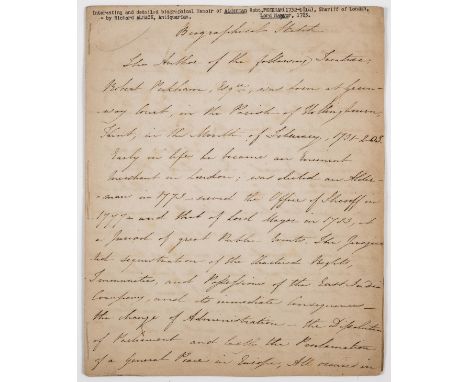 Interesting and detailed biographical Memoir of Alderman Robt. PECKHAM(1732- ), Sheriff of London,
- by Richard ALMACK, Antiquarian. Lord Mayor, 1783.
Biographical Sketch
The Author of the following
Robert Peckham, Esqre., was born at Green-
way Court, in the Parish of Hollingbourn,
Kent, in the Month of February, 1731-2 O.S.
Early in life he became an eminent
merchant in London; was elected an Alder-
man in 1773 served the Office of Sheriff in
and that of Lord Mayor in 1783, at
a period of great Public Events. The
sequestration of the Chartered Rights,
Immunities, and Possessions of the East India
Company, and its immediate consequences -
the change of Administration - the Dissolution
of Parliament and the Proclamation
of a General Peace in Europe, All occurred in